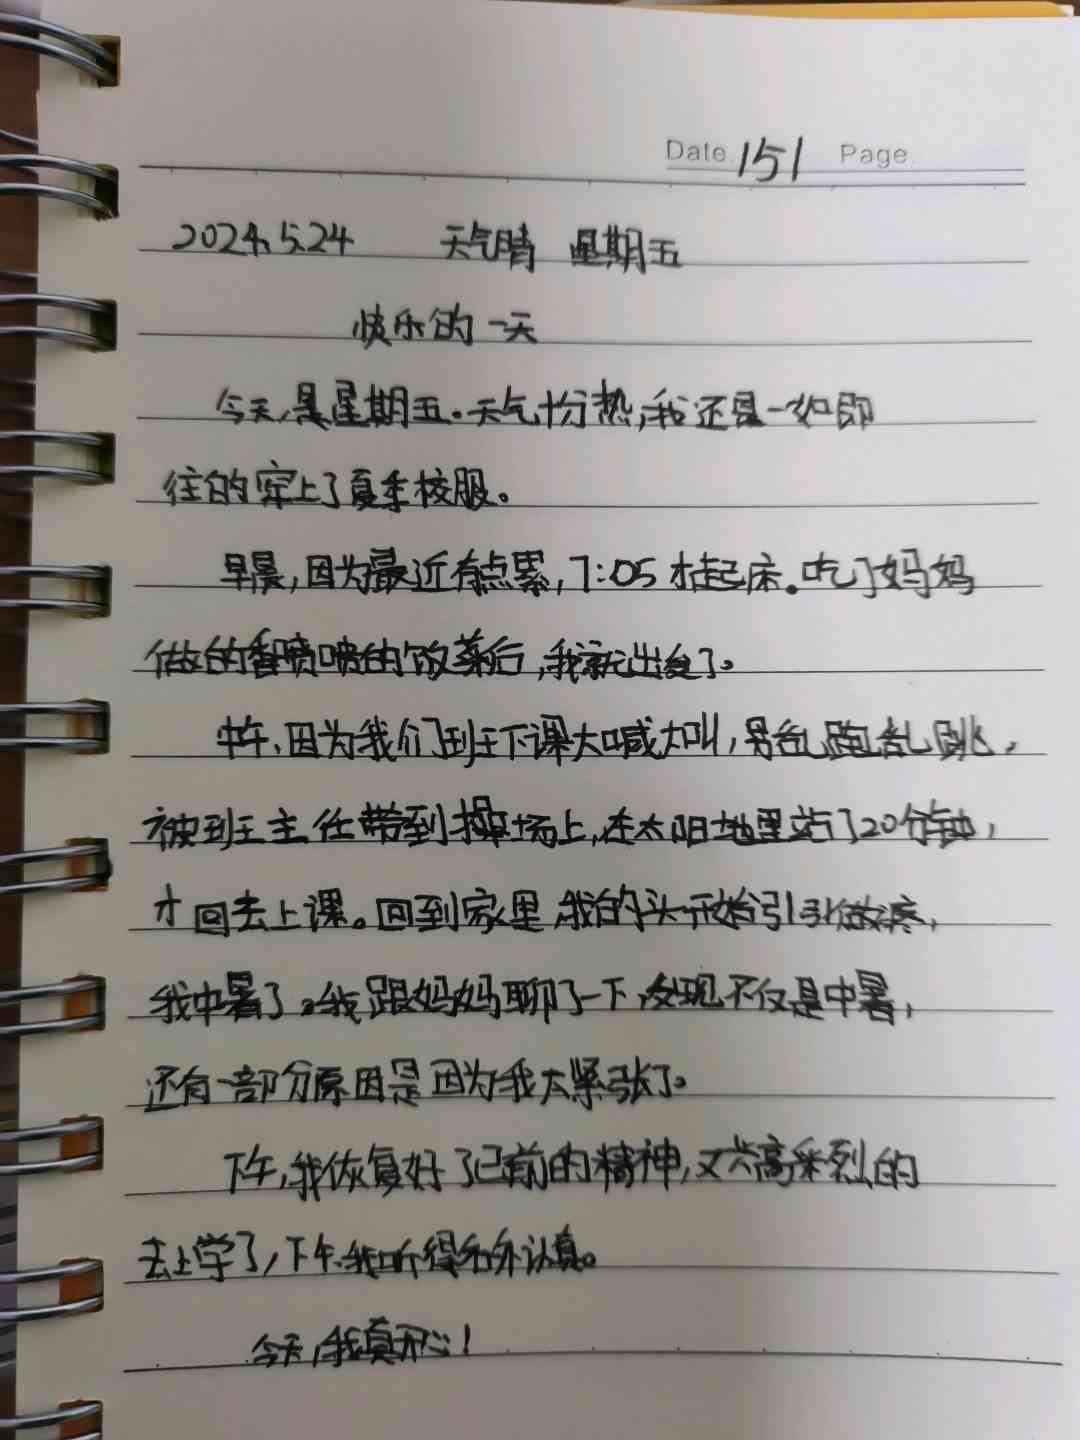 Date. 151 Page.
2024.5.24 天气晴 星期五
快乐的一天
今天,是星期五。天气十分热,我还是一如即
往的穿上了夏季校服。
早晨,因为最近有点累,7:05才起床。吃了妈妈
做的香喷喷的饭菜后,我就出发了。
中午,因为我们班下课大喊大叫,另乱跑乱跳,
被班主任带到操场上,在太阳地里站了20分钟,
才回去上课。回到家里,我的头开始引引做疼,
我中暑了。我跟妈妈聊了一下,发现不仅是中暑,
还有一部分原因是因为我太紧张了。
下午,我恢复好了已前的精神,又兴高采烈的
去上学了,下午,我听得格外认真。
今天,我真开心!